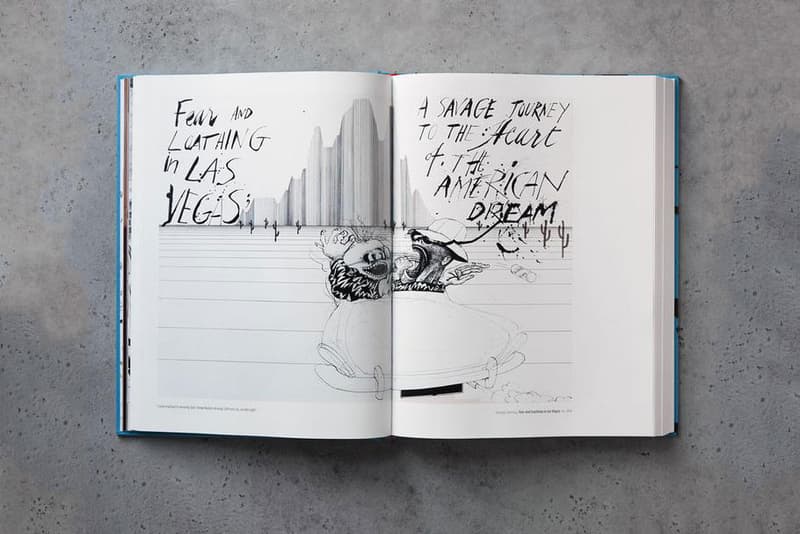 Fear AND
LOATHING
in LAS
VEGAS;
A SAVAGE JOURNEY
TO THE Heart
of THE
AMERICAN
DREAM
Fear and Loathing in Las Vegas